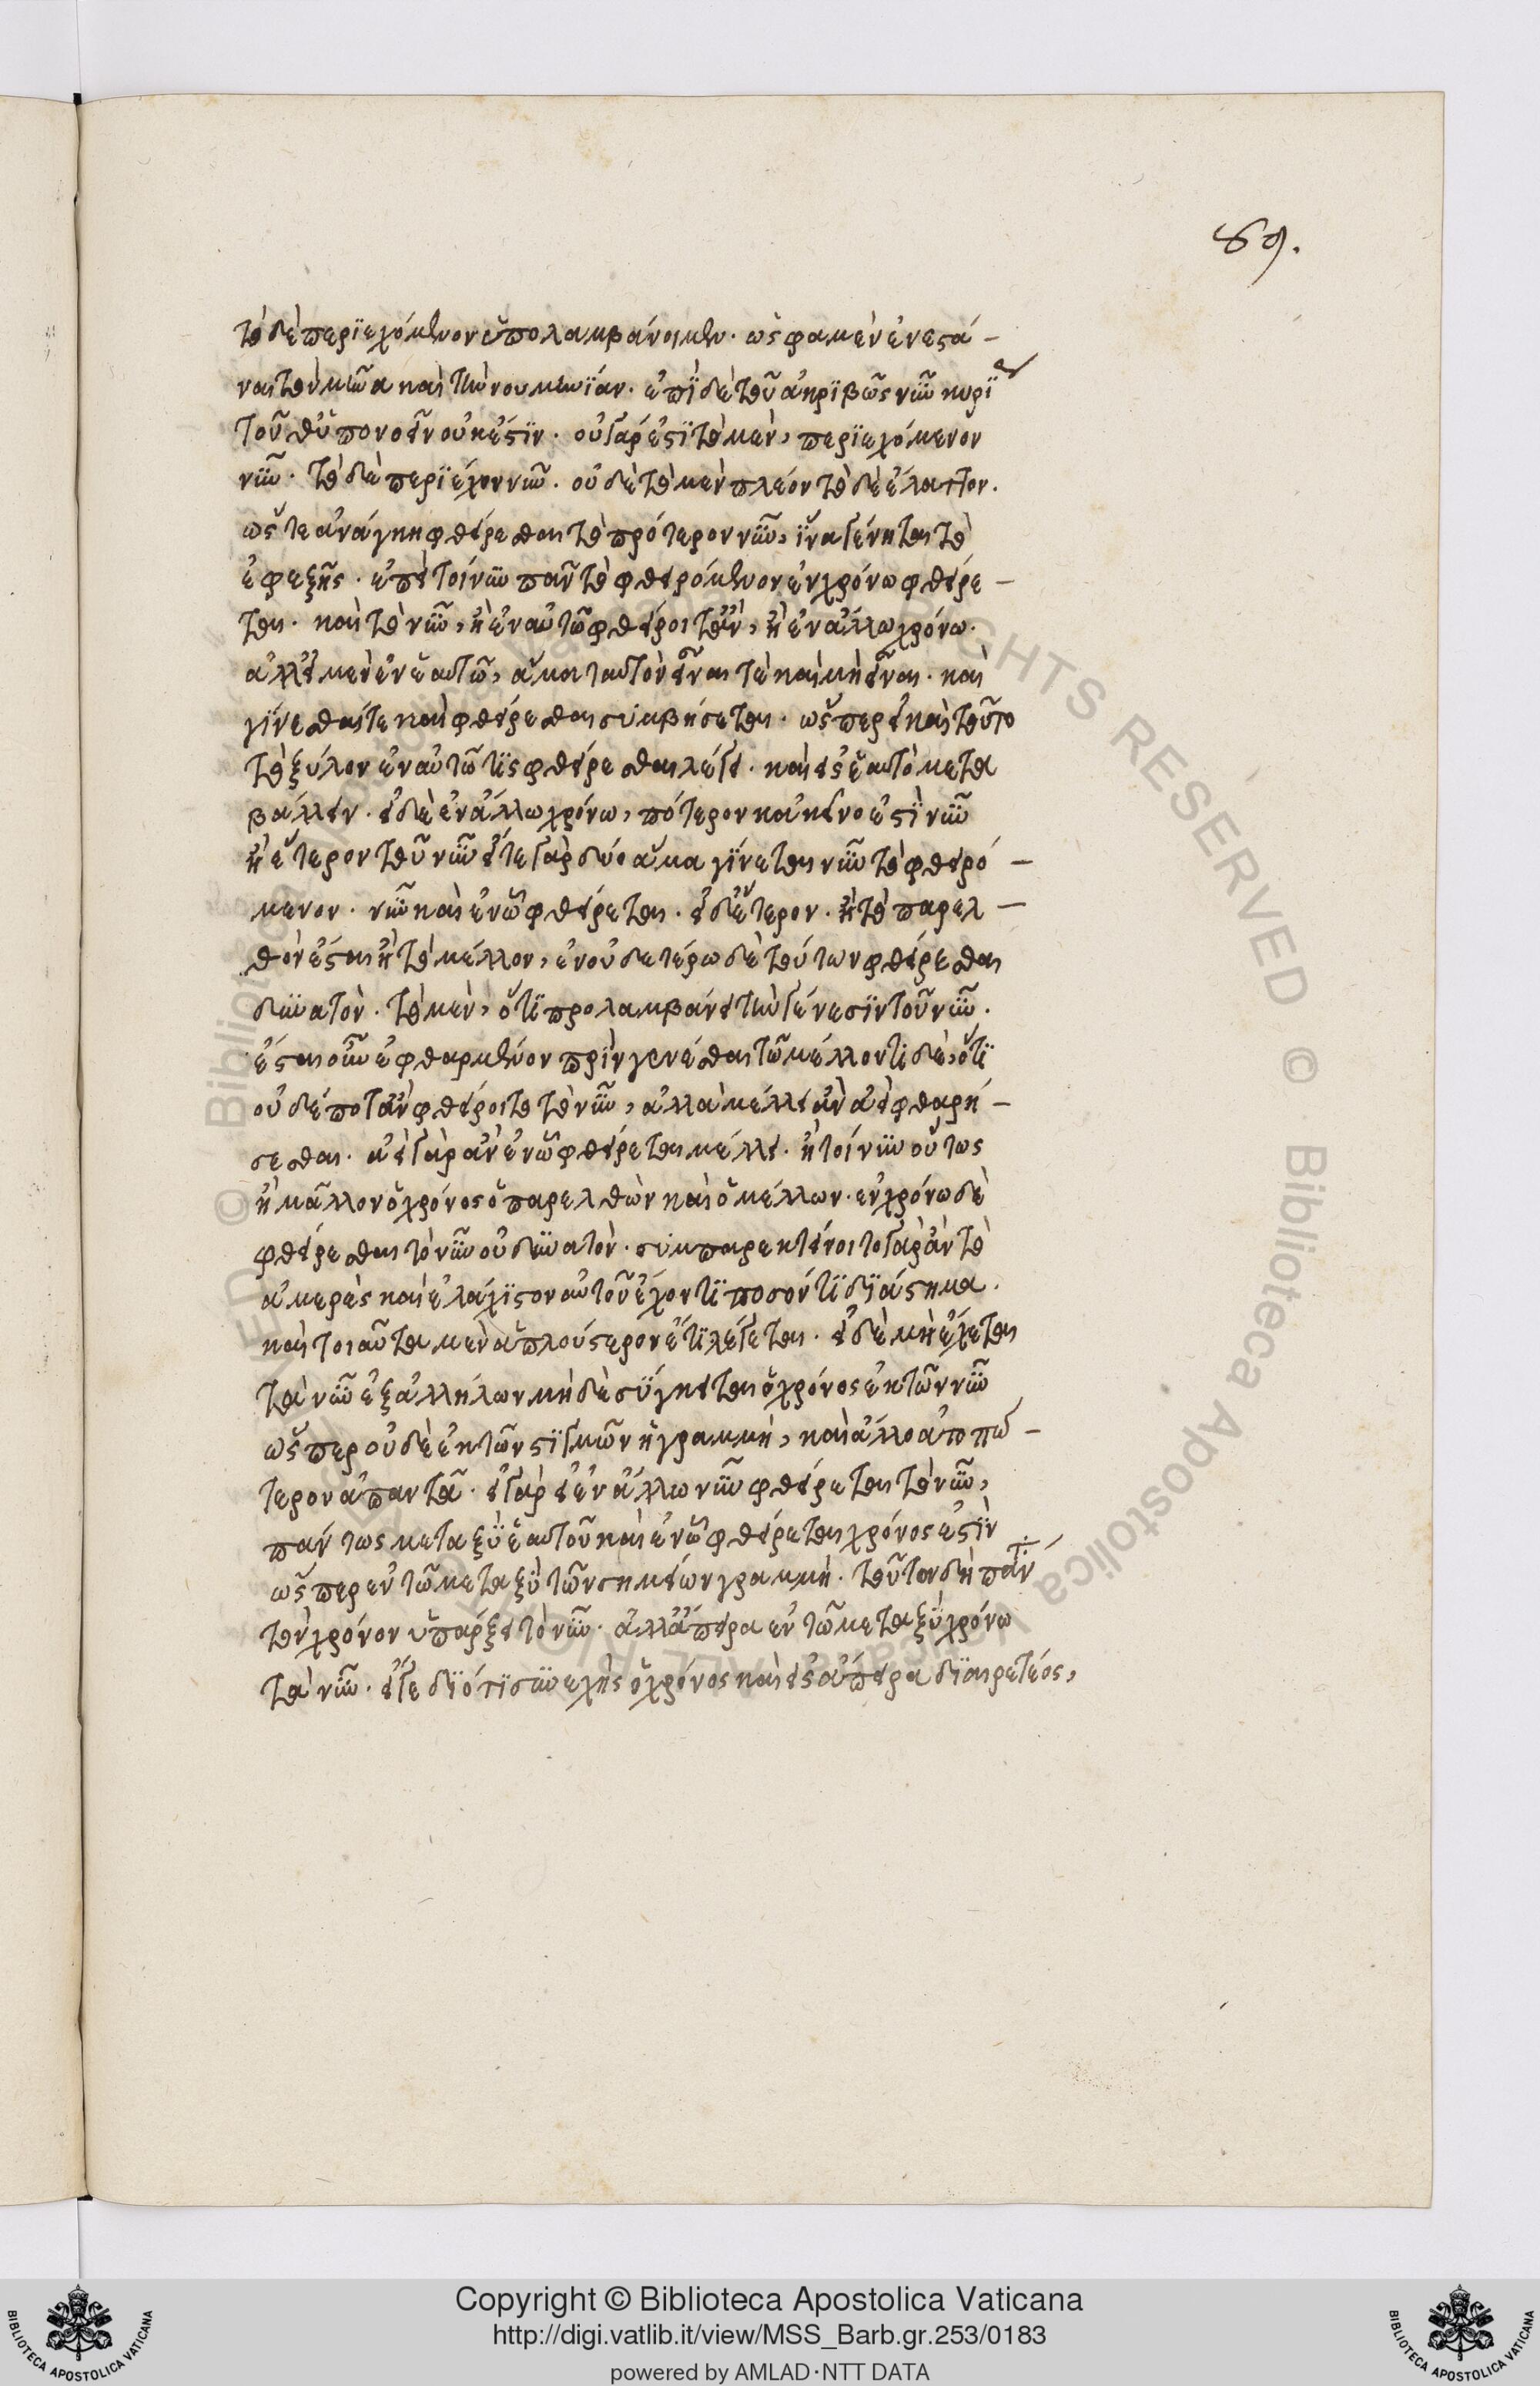 89.
τὸ δὲ περϊεχόμενον ὑπολαμβάνοιμεν· ὡς φαμὲν ἐνεστά–
ναι τὸν μῆνα καὶ τὴν νουμηνϊάν. ἐπῒ δὲ τοῦ ἀκρϊβῶς νῦν κυρϊ
τοῦθ᾽ ὑπονοεῖν οὐκ ἐστϊν. οὐ γάρ ἐστϊ τὸ μὲν, περϊεχόμενον
νῦν· τὸ δὲ περϊέχον νῦν. οὐδὲ τὸ μὲν πλέον τὸ δὲ ἔλαττον.
ὥς τε ἀνάγκη φθείρεσθαι τὸ πρότερον νῦν, ἵνα γένηται τὸ
ἐφεξῆς. ἐπεὶ τοίνυν πᾶν τὸ φθειρόμενον ἐν χρόνω φθείρε–
ται. καὶ τὸ νῦν, ἢ ἐν αὑτῶ φθείροιτ᾽ ἂν, ἢ ἐν ἄλλω χρόνω.
ἀλλ᾽ εἰ μὲν ἐν ἑαυτῶ, ἅμα ταυτὸν εἶναι τὲ καὶ μὴ εἶναι. καὶ
γϊνεσθαί τε καὶ φθείρεσθαι συμβήσεται. ὥσπερ εἰ καὶ τοῦτο
τὸ ξύλον ἐν αὑτῶ τις φθείρεσθαι λέγει. καὶ εἰς ἑαυτὸ μετα
βάλλειν. εἰ δὲ ἐν ἄλλω χρόνω, πότερον κἀκεῖνο ἐστὶ νῦν
ἢ ἕτερον τοῦ νῦν εἴτε γὰρ δύο ἅμα γϊνεται νῦν τὸ φθειρό–
μενον. νῦν καὶ ἐν ὧ φθείρεται. εἰ δ᾽ ἕτερον. ἢ τὸ παρελ–
θόν ἐσται ἢ τὸ μέλλον, ἐν οὐδετέρω δὲ τούτων φθείρεσθαι
δυνατὸν. τὸ μὲν, ὅτϊ προλαμβάνει τὴν γένεσϊν τοῦ νῦν.
ἔσται οὖν ἐφθαρμένον πρὶν γενέσθαι τῶ μέλλοντι δὲ, ὅτϊ
οὐδέποτ᾽ ἂν φθείροιτο τὸ νῦν, ἀλλὰ μέλλει ἂν ἀεὶ φθαρή–
σεσθαι. ἀεὶ γὰρ ἂν ἐν ὧ φθείρεται μέλλει. ἢ τοίνυν οὕτως
ἢ μᾶλλον ὁ χρόνος ὁ παρελθὼν καὶ ὁ μέλλων. ἐν χρόνω δὲ
φθείρεσθαι τὸ νῦν οὐ δυνατὸν. συμπαρεκτείνοιτο γὰρ ἂν τὸ
ἀμερὲς καὶ ἐλάχϊστον αὐτοῦ ἔχοντϊ ποσόν τϊ δϊάστημα.
καὶ τοιαῦτα μὲν ἁπλούστερον ἔτϊ λέγεται. εἰ δὲ μὴ ἔχεται
τὰ νῦν ἐξ ἀλλήλων μηδὲ σύγκειται ὁ χρόνος ἐκ τῶν νῦν
ὥσπερ οὐδὲ ἐκ τῶν στϊγμῶν ἡ γραμμὴ, καὶ ἄλλο ἀτοπώ–
τερον ἀπαντᾶ. εἰ γὰρ εἰ ἐν ἄλλω νῦν φθείρεται τὸ νῦν,
πάντως μεταξὺ ἑαυτοῦ καὶ ἐν ὧ φθείρεται χρόνος ἐστὶν
ὥσπερ ἐν τῶ μεταξὺ τῶν σημείων γραμμὴ. τοῦτον δὴ πάν
τὸν χρόνον ὑπάρξει τὸ νῦν. ἀλλ᾽ ἄπειρα ἐν τῶ μεταξὺ χρόνω
τὰ νῦν. εἴγε δϊότϊ συνεχὴς ὁ χρόνος καὶ εἰς ἄπειρα δϊαιρετέος,
Copyright © Biblioteca Apostolica Vaticana
http://digi.vatlib.it/view/MSS_Barb.gr.253/0183
powered by AMLAD·NTT DATA